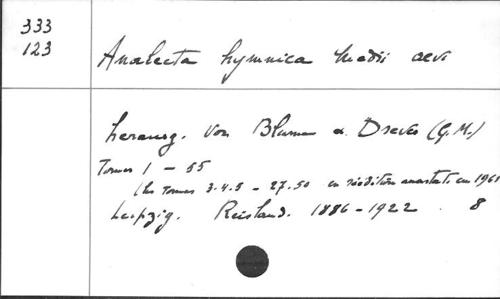 333
123
Analecta hymnica medii aevi
herausg. von Blume & Dreves (G.M.)
Tomes 1 - 55
(les Tomes 3.4.5 - 27.50 en réédition anastat. en 1961
Leipzig. Reisland. 1886-1922 . 8